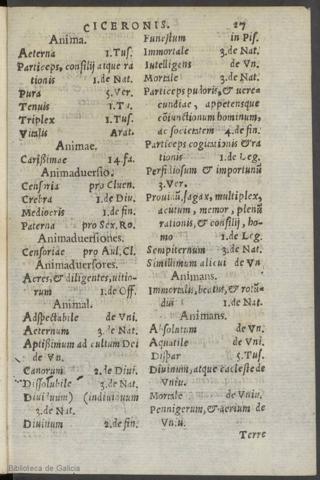 CICERONIS. 27
Anima.
Aeterna 1.Tus.
Particeps, consilij atque ra
tionis 1.de Nat.
Pura 5.Ver.
Tenuis 1.Tu.
Triplex 1.Tus.
Vitalis Arat.
Animae.
Carissimae 14.fa.
Animaduersio.
Censoria pro Cluen.
Crebra 1.de Diu.
Mediocris 1.de fin.
Paterna pro Sex.Ro.
Animaduersiones.
Censoriae pro Aul.Cl.
Animaduersores.
Acres,& diligentes,uitio-
rum 1.de Off.
Animal.
Adspectabile de Vni.
Aeternum 3.de Nat.
Aptissimum ad cultum Dei
de Vn.
Canorum 2.de Diui.
Dissolubile 3.de Nat.
Diuiduum) (indiuiduum
3.de Nat.
Diuinum 2.de fin.
Funestum in Pis.
Immortale 3.de Nat.
Intelligens de Vn.
Mortale 3.de Nat.
Particeps pudoris,& uere
cundiae, appetensque
cōiunctionum hominum,
ac societatem 4.de fin.
Particeps cogitationis & ra
tionis 1.de Leg.
Perfidiosum & importunū
3.Ver.
Prouidū, sagax, multiplex,
acutum, memor, plenū
rationis,& consilij, ho-
mo 1.de Leg.
Sempiternum 3.de Nat.
Simillimum alicui de Vn
Animans.
Immortalis, beatus,& rotū-
dus 1.de Nat.
Animans.
Absolutum de Vn.
Aquatile de Vni.
Dispar 5.Tus.
Diuinum,atque caeleste de
Vniu.
Mortale de Vniu.
Pennigerum,& aerium de
Vn.u.
Terre
Biblioteca de Galicia